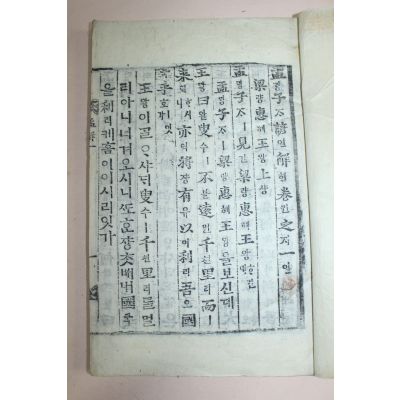 孟ᄆᆡᆼ子ᄌᆞ諺언解ᄒᆡ卷권之지一일
梁량惠혜王왕上샹
孟ᄆᆡᆼ子ᄌᆞㅣ見견梁량惠혜王왕
孟ᄆᆡᆼ子ᄌᆞㅣ梁량惠혜王왕을보신ᄃᆡ
王왕曰왈叟수ㅣ不블遠원千쳔里리而이
來ᄅᆡᄒᆞ시니亦역將쟝有유以이利리吾오國국
乎호잇가
王왕이ᄀᆞᆯᄋᆞ샤ᄃᆡ叟수ㅣ千쳔里리를멀
리아니너겨오시니ᄯᅩ호쟝ᄎᆞᆺ내國국
을利리케홈이이시리잇가